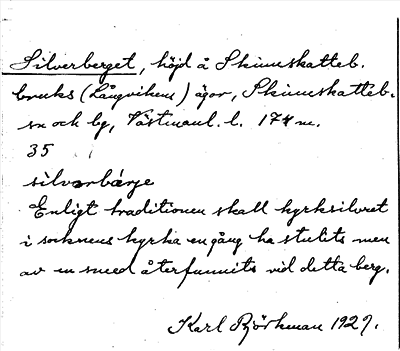 Silverberget, höjd å Skinnskatteb.
bruks (Långvikens) ägor, Skinnskatteb.
sn och bg, Västmanl. l. 174 m.
35
silvarbärje
Enligt traditionen skall kyrksilvret
i socknens kyrka en gång ha stulits men
av en smed återfunnits vid detta berg.
Karl Björkman 1929.